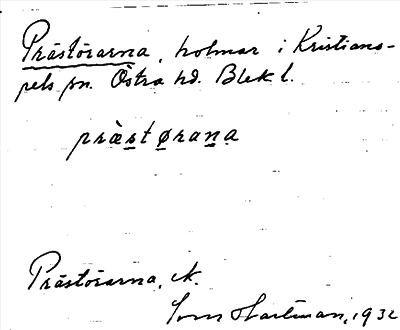 Prästörarna, holmar i Kristians-
pels sn. Östra hd. Blek l.
præ̀størana
Prästörarna,
Hartman, 1932